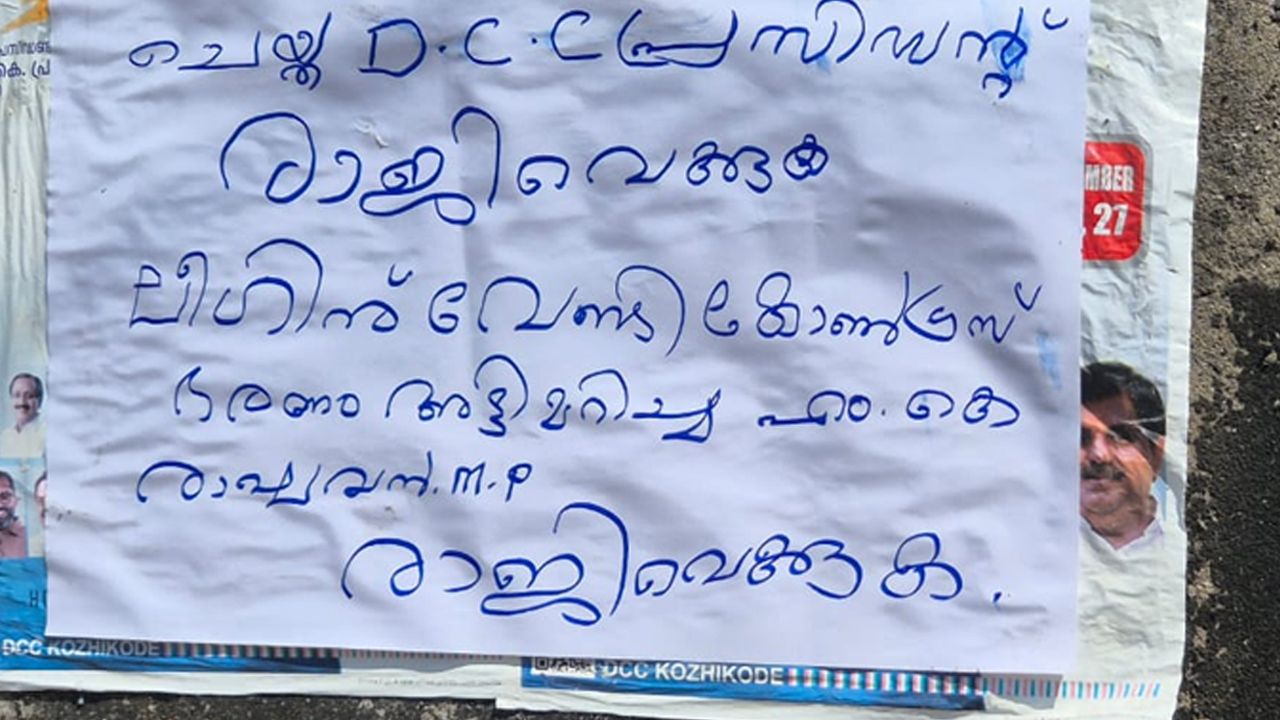 ചെയ്ത D.C.C പ്രസിഡന്റ്
രാജിവെക്കുക
ലീഗിന് വേണ്ടി കോൺഗ്രസ്
ഭരണം അട്ടിമറിച്ച എം.കെ
രാഘവൻ.M.P
രാജിവെക്കുക.
MBER
27
DCC KOZHIKODE
DCC KOZHIKODE